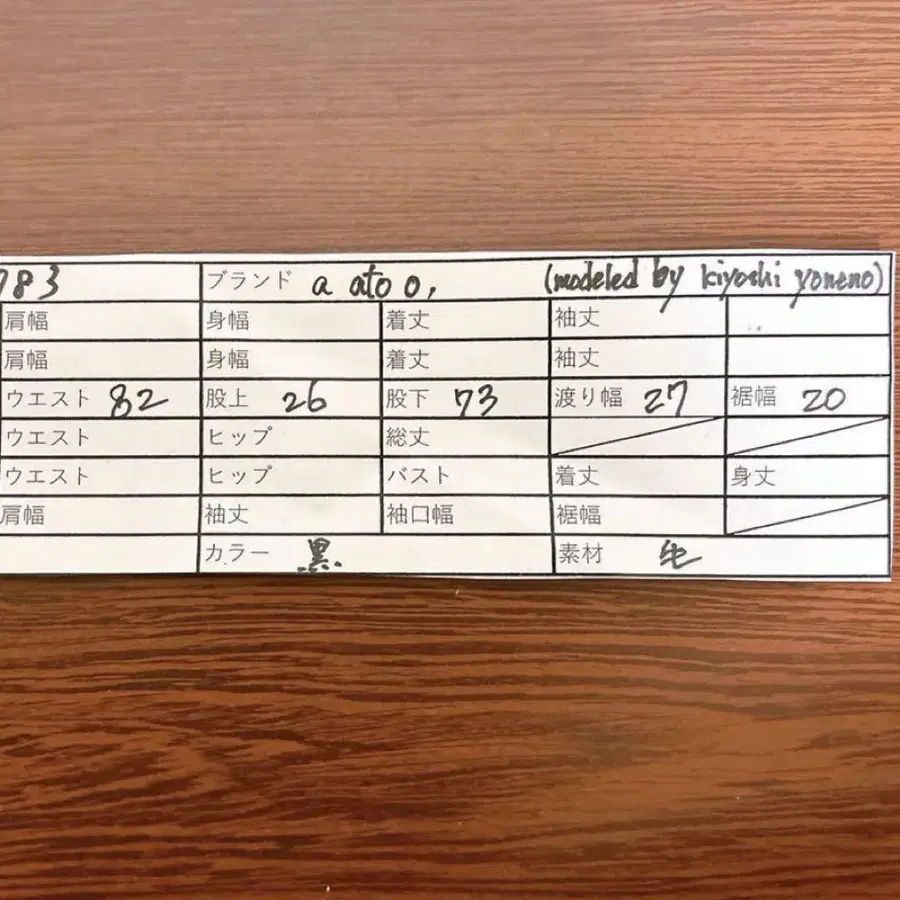 783 ブランド a ato o, (modeled by kiyoshi yoneno)
肩幅 身幅 着丈 袖丈
肩幅 身幅 着丈 袖丈
ウエスト 82 股上 26 股下 73 渡り幅 27 裾幅 20
ウエスト ヒップ 総丈
ウエスト ヒップ バスト 着丈 身丈
肩幅 袖丈 袖口幅 裾幅
カラー 黒 素材 毛